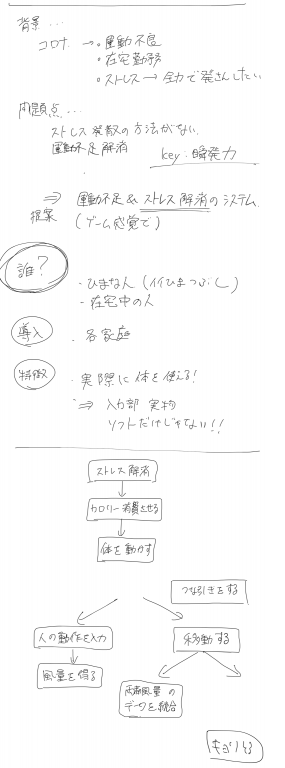 背景...
コロナ → ・運動不良
・在宅勤務
・ストレス → 全力で発さんしたい
問題点...
ストレス発散の方法がない.
運動不足解消 key:瞬発力
⇒ 運動不足&ストレス解消のシステム
提案 (ゲーム感覚で)
誰?
・ひまな人 (ひまつぶし)
- 在宅中の人
導入 ・各家庭
特徴 ・実際に体を使える!
⇒ 入力部 実物
ソフトだけじゃない!!
ストレス解消
カロリー消費させる
体を動かす
つな引きをする
人の動作を入力 移動する
風量を得る
両者風量の
データを統合